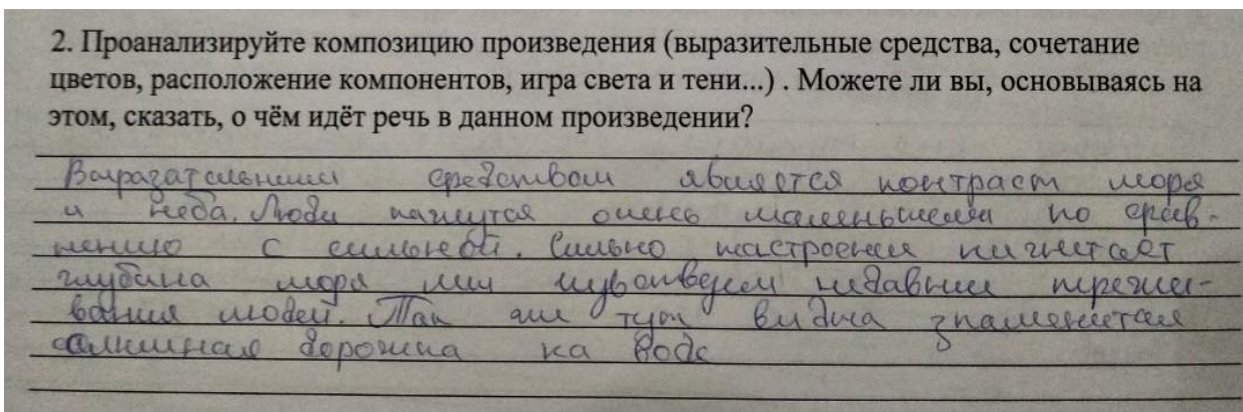 2. Проанализируйте композицию произведения (выразительные средства, сочетание
цветов, расположение компонентов, игра света и тени...) . Можете ли вы, основываясь на
этом, сказать, о чём идёт речь в данном произведении?
Выразательным средством является контраст моря
и неба. Люди кажутся очень маленькими по срав-
нению с . Сильно настроение нагнетает
глубина моря мы чувствуем недавние пережи-
вания людей. Так тут видна знаменитая
дорожка на воде